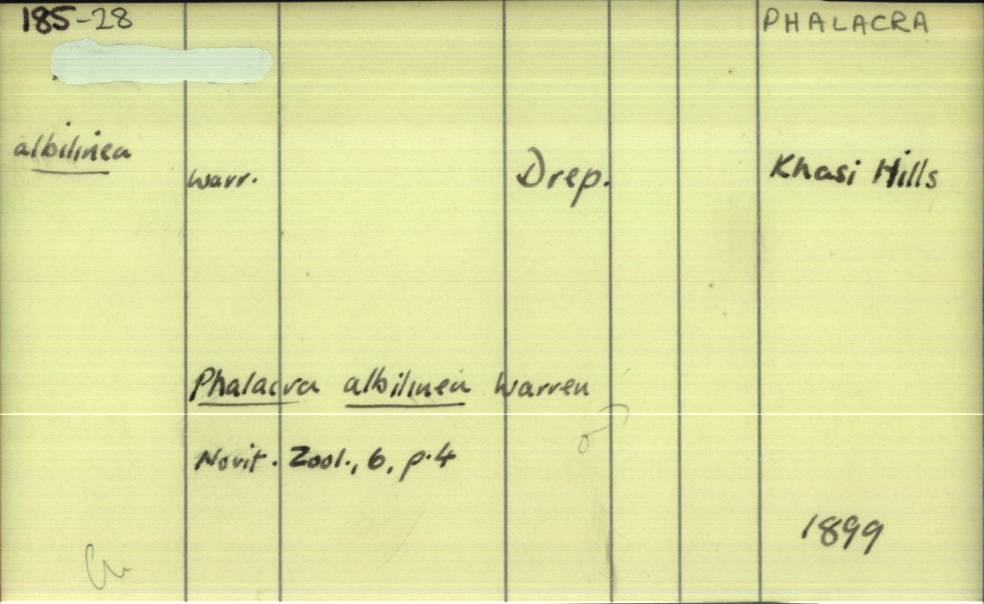 185-28
PHALACRA
albilinea
Warr.
Drep.
Khasi Hills
Phalacra albilinea Warren
Novit. Zool., 6, p.4
1899